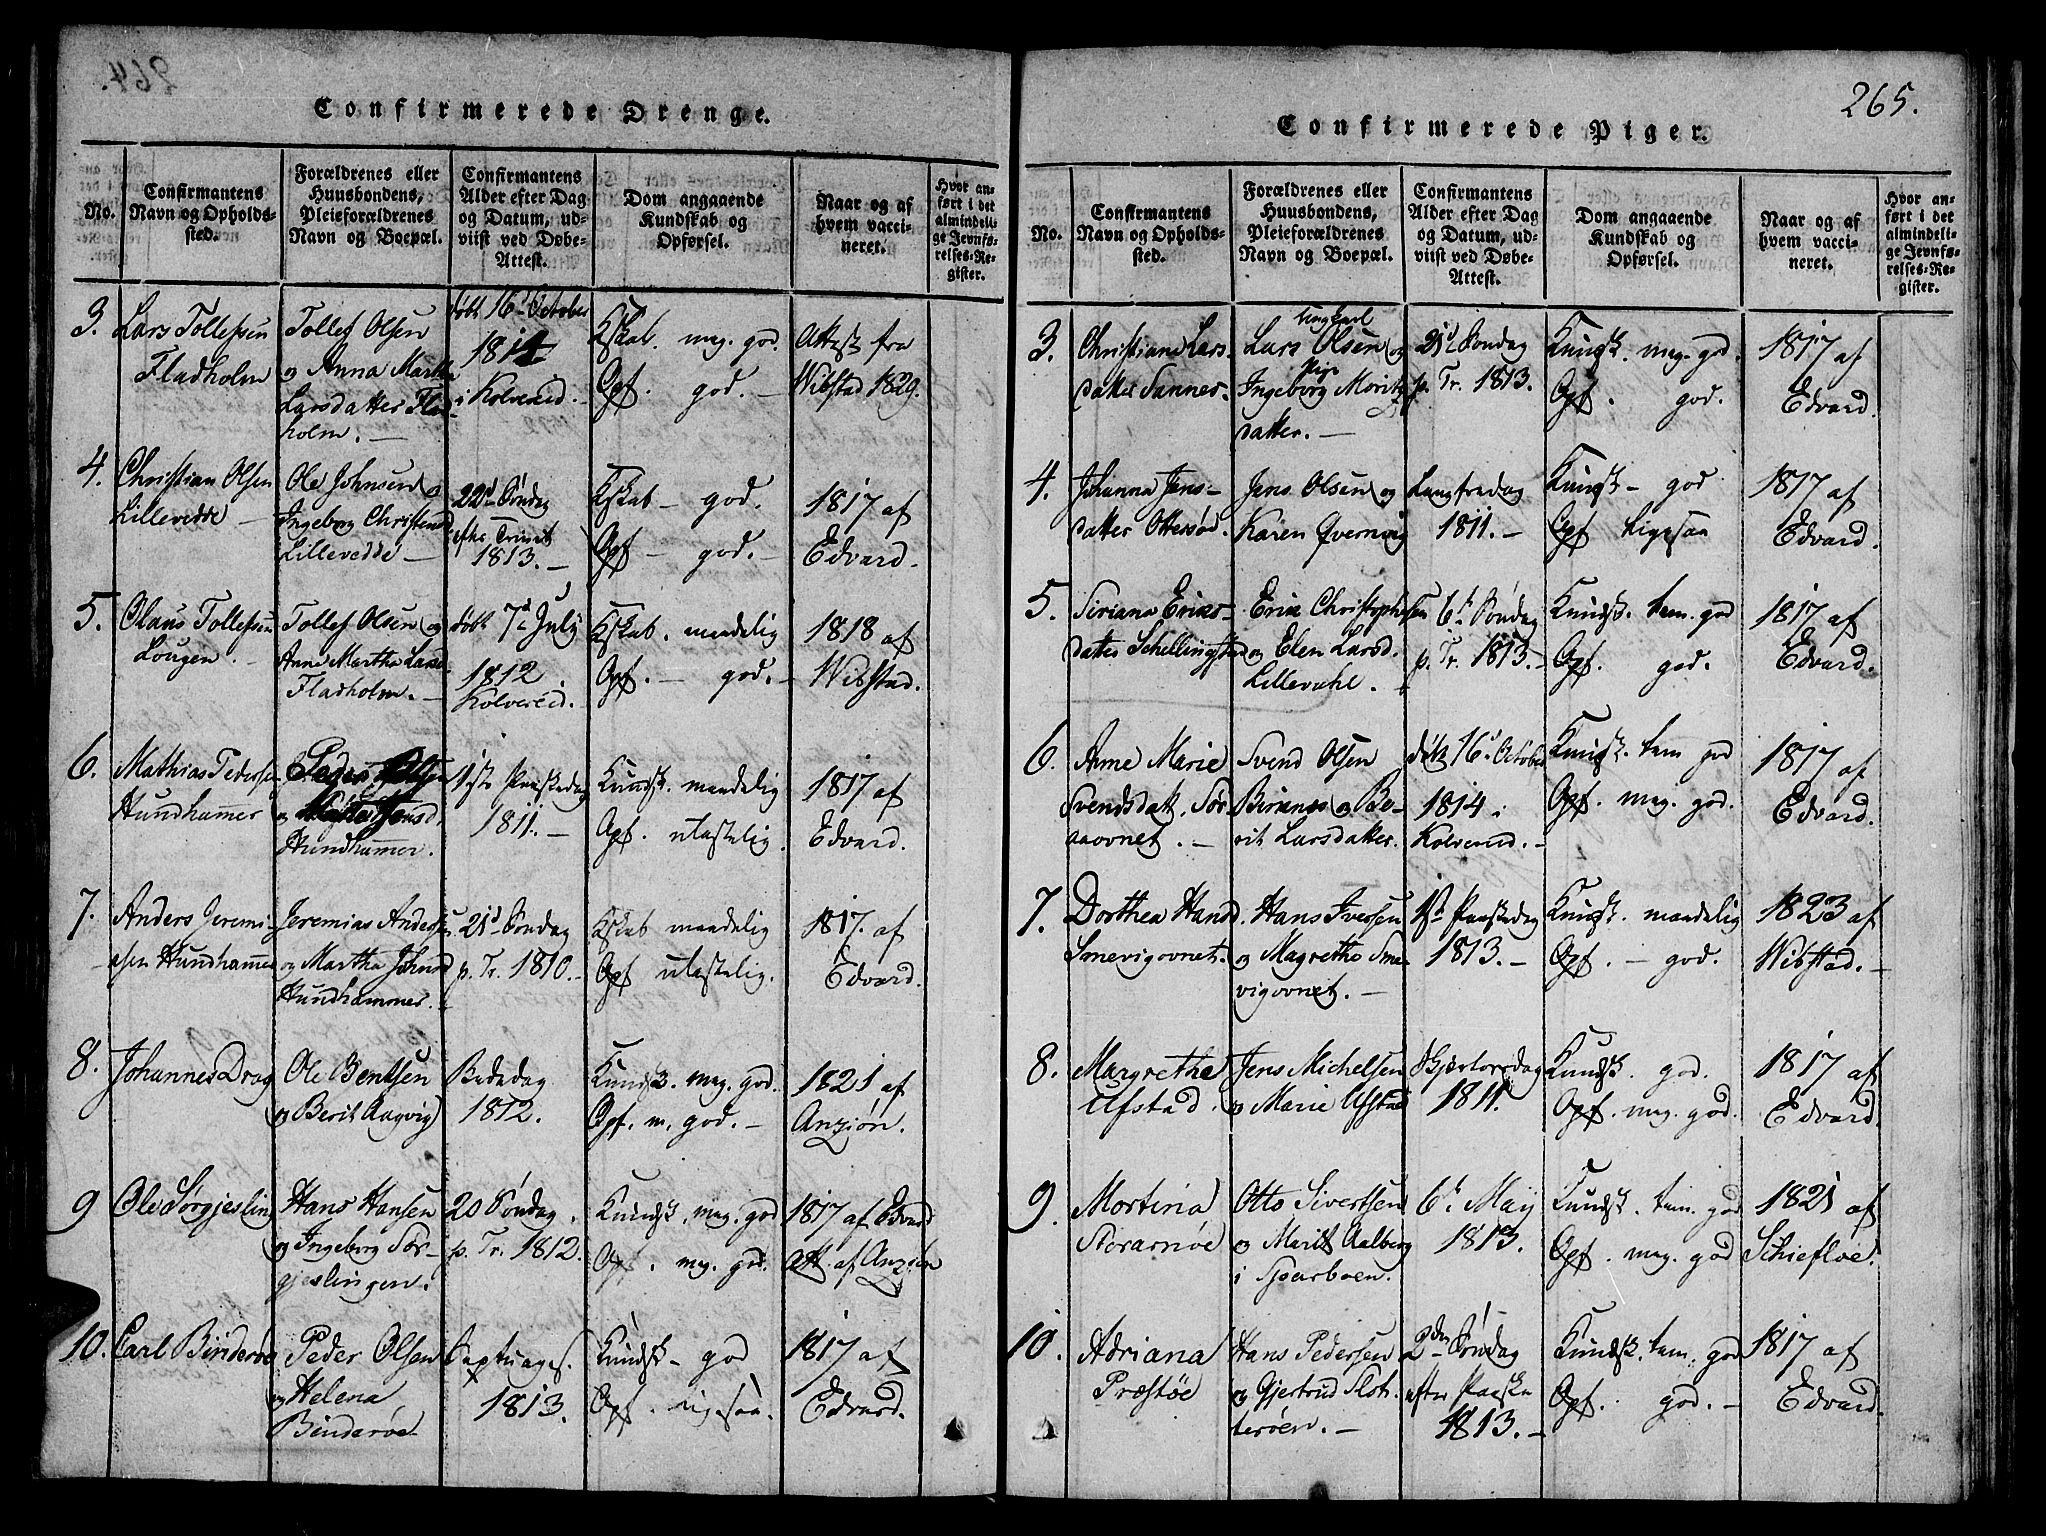 264.
Confirmerede Drenge.
No.
Confirmantens
Navn og Opholds-
sted.
Forældrenes eller
Huusbondens,
Pleieforældrenes
Navn og Boepæl.
Confirmantens
Alder efter Dag
og Datum, ud-
viist ved Døbe-
Attest.
Dom angaaende
Kundskab og
Opførsel.
Naar og af
hvem vacci-
neret.
Hvor an-
ført i det
almindeli-
ge Jevnfø-
relses-Re-
gister.
3.
Lars Tollefsen
Fladholm
Tollef Olsen
og Anna Martha
Larsdatter Flad-
holm. —
født 16d October
1814
i Kolvereid. —
Kskab. meg. god.
Opf. god. —
Attest fra
Wibstad 1829.
4.
Christian Olsen
Lillevedde —
Ole Johnsen og
Ingeborg Christensd
Lillevedde —
22d Søndag
efter Trinit
1813. —
Kskab — god.
Opf — god. —
1817 af
Edvard.
5.
Olaus Tollefsen
Lougen. —
Tollef Olsen og
Anne Martha Larsd
Fladholm. —
født 7d July
1812.
Kolvereid.
Kskab. maadelig
Opf. — god. —
1818 af
Wibstad.
6.
Mathias Pedersen
Hundhammer
Peder
og
Hundhammer.
1ste Paaskedag
1811. —
Kundsk. maadelig
Opf. ulastelig.
1817 af
Edvard.
7.
Anders Jeremi-
asen Hundhammer
Jeremias Andersen
og Martha Johnsd
Hundhammer.
21d Søndag
p. Tr. 1810. —
Kskab maadelig
Opf ulastelig.
1817. af
Edvard.
8.
Johannes Drag
Ole Bentsen
og Berit Aagvig
Bededag
1812.
Kundsk. meg. god.
Opf. m. god. —
1821 af
Anziøn.
9
Ole Sørgjesling
Hans Hansen
og Ingeborg Sør-
gjeslingen.
20 Søndag
p. Tr. 1812.
Kundsk. meg. god
Opf. meg. god.
1817 af Edvard
att. af Anziøn
10.
Carl Binderøe
Peder Olsen
og Helena
Binderøe
Septuages.
1813.
Kundsk — god
Opf. ligesaa.
1817 af
Edvard.
265.
Confirmerede Piger.
No.
Confirmantens
Navn og Opholds-
sted.
Forældrenes eller
Huusbondens,
Pleieforældrenes
Navn og Boepæl.
Confirmantens
Alder efter Dag
og Datum, ud-
viist ved Døbe-
Attest.
Dom angaaende
Kundskab og
Opførsel.
Naar og af
hvem vacci-
neret.
Hvor an-
ført i det
almindeli-
ge Jevnfø-
relses-Re-
gister.
3.
Christiane Lars-
datter Sannes.
Ungkarl
Lars Olsen og
Pige
Ingeborg Moritz
datter. —
21d Søndag
p. Tr. 1813.
Kundsk. meg. god.
Opf. god.
1817 af
Edvard.
4.
Johanna Jens-
datter Ottersøe.
Jens Olsen og
Karen Qverning
Langfredag
1811. —
Kundsk — god
Opf ligesaa
1817 af
Edvard.
5.
Siriana Eriks-
datter
Erik Christophersen
og Elen Larsd.
6te Søndag
p. Tr. 1813. —
Kundsk. tem. god
Opf. god.
1817 af
Edvard.
6.
Anne Marie
Svendsdat. Sør-
aavnet. —
Svend Olsen
og Be-
rit Larsdatter.
født 16d October
1814 i
Kolvereid. —
Kundsk. tem god
Opf. meg. god.
1817 af
Edvard.
7.
Dorthea Hansd.
Smevigovnet.
Hans Iversen
og Magretha Sme-
vigovnet. —
1ste Paaskedag
1813. —
Kundsk. maadelig
Opf. — god.
1823 af
Wibstad. —
8.
Margrethe
Ufstad.
Jens Michelsen
og Marie Ufstad
Skjærtorsdag
1811.
Kundsk. god.
Opf. meg. god.
1817 af
Edvard.
9.
Mortina
Storarnøe
Otto Sivertsen
og Marit Aalberg
i Sparboen.
6te Maij
1813.
Kundsk. tem. god
Opf. meg. god
1821 af
Schiefloe.
10.
Adriana
Præstøe
Hans Pedersen
og Gjertrud Slot-
terøen. —
2den Søndag
efter Paaske
1813. —
Kundsk. tem. god
Opf. god. —
1817 af
Edvard.